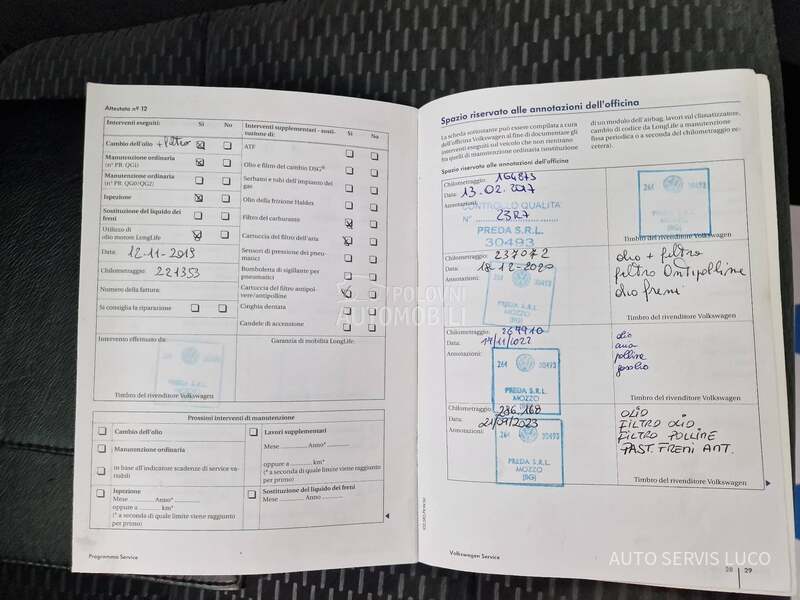 Attestato nº 12
Interventi eseguiti:
Sì
No
Cambio dell'olio + filtro
Manutenzione ordinaria
(nº PR. QG1)
Manutenzione ordinaria
(nº PR. QG0/QG2)
Ispezione
Sostituzione del liquido dei
freni
Utilizzo di
olio motore LongLife
Data: 12-11-2019
Chilometraggio: 221353
Numero della fattura:
Si consiglia la riparazione
Interventi supplementari - sosti-
tuzione di:
Sì
No
ATF
Olio e filtro del cambio DSG®
Serbatoio e tubi dell'impianto del
gas
Olio della frizione Haldex
Filtro del carburante
Cartuccia del filtro dell'aria
Sensori di pressione dei pneu-
matici
Bomboletta di sigillante per
pneumatici
Cartuccia del filtro antipol-
vere/antipolline
Cinghia dentata
Candele di accensione
Intervento effettuato da:
Timbro del rivenditore Volkswagen
Garanzia di mobilità LongLife:
Prossimi interventi di manutenzione
Cambio dell'olio
Manutenzione ordinaria
in base all'indicatore scadenze di service va-
riabili
Ispezione
Mese ........ Anno* ........
oppure a ........ km*
(* a seconda di quale limite viene raggiunto
per primo)
Lavori supplementari
Mese ........ Anno* ........
oppure a ........ km*
(* a seconda di quale limite viene raggiunto
per primo)
Sostituzione del liquido dei freni
Mese ........ Anno ........
Programma Service
Spazio riservato alle annotazioni dell'officina
La scheda sottostante può essere compilata a cura
dell'officina Volkswagen al fine di documentare gli
interventi eseguiti sul veicolo che non rientrano
fra quelli di manutenzione ordinaria (sostituzione
di un modulo dell'airbag, lavori sul climatizzatore,
cambio di codice da LongLife a manutenzione
fissa periodica o a seconda del chilometraggio ec-
cetera).
Spazio riservato alle annotazioni dell'officina
Chilometraggio: 164873
Data: 13.02.2017
Annotazioni:
CONTROLLO QUALITA
N° 23R7
PREDA S.R.L.
30493
264 30493
Timbro del rivenditore Volkswagen
Chilometraggio: 237072
Data: 18-12-2020
Annotazioni:
PREDA S.R.L.
MOZZO
(BG)
olio + filtro
filtro Antipolline
olio freni
Timbro del rivenditore Volkswagen
Chilometraggio: 264910
Data: 17/11/2022
Annotazioni:
264 30493
PREDA S.R.L.
MOZZO
(BG)
olio
aria
polline
gasolio
Timbro del rivenditore Volkswagen
Chilometraggio: 286.168
Data: 21/09/2023
Annotazioni:
264 30493
PREDA S.R.L.
MOZZO
(BG)
OLIO
FILTRO OLIO
FILTRO POLLINE
PAST. FRENI ANT.
Timbro del rivenditore Volkswagen
Volkswagen Service
28 29
POLOVNI
AUTOMOBILI
AUTO SERVIS LUCO